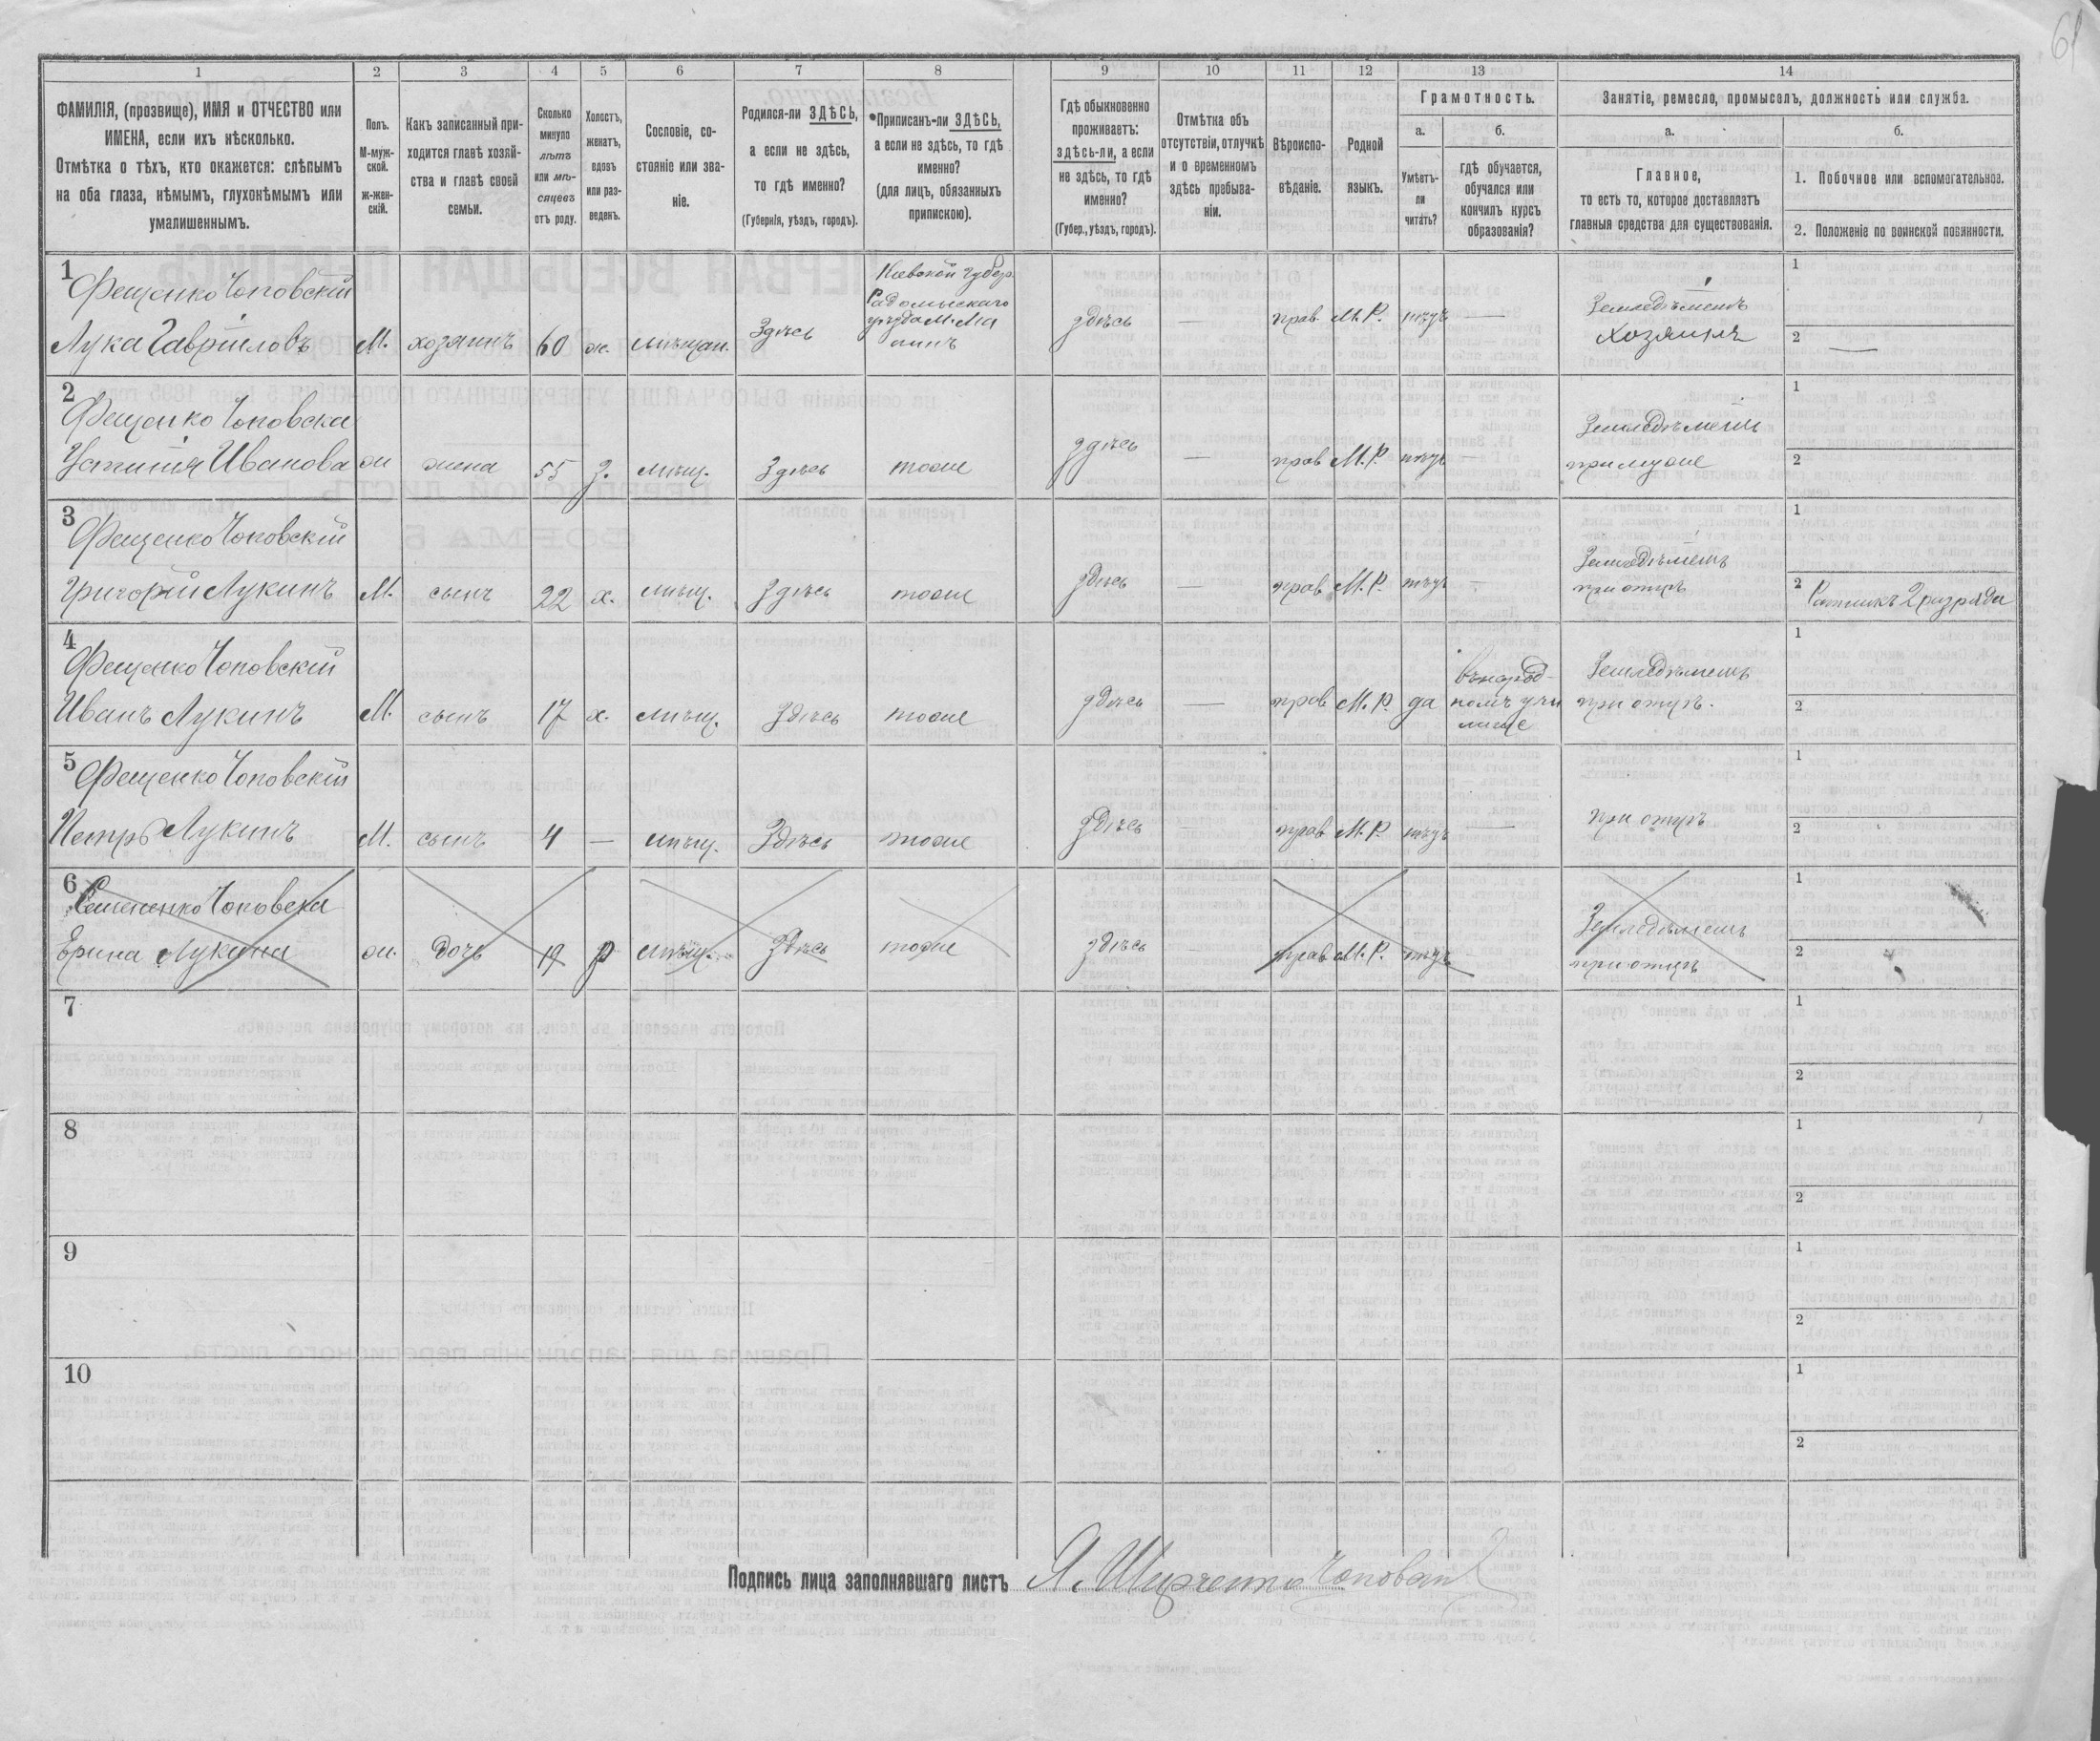 61
1 2 3 4 5 6 7 8 9 10 11 12 13 14
ФАМИЛІЯ, (прозвище), ИМЯ и ОТЧЕСТВО или
ИМЕНА, если ихъ нѣсколько.
Отмѣтка о тѣхъ, кто окажется: слѣпымъ
на оба глаза, нѣмымъ, глухонѣмымъ или
умалишеннымъ.
Полъ.
М-муж-
ской.
ж-жен-
скій.
Какъ записанный при-
ходится главѣ хозяй-
ства и главѣ своей
семьи.
Сколько
минуло
лѣтъ
или мѣ-
сяцевъ
отъ роду.
Холостъ,
женатъ,
вдовъ
или раз-
веденъ.
Сословіе, со-
стояніе или зва-
ніе.
Родился-ли ЗДѢСЬ,
а если не здѣсь,
то гдѣ именно?
(Губернія, уѣздъ, городъ).
Приписанъ-ли ЗДѢСЬ,
а если не здѣсь, то гдѣ
именно?
(для лицъ, обязанныхъ
припискою).
Гдѣ обыкновенно
проживаетъ:
здѣсь-ли, а если
не здѣсь, то гдѣ
именно?
(Губер., уѣздъ, городъ).
Отмѣтка объ
отсутствіи, отлучкѣ
и о временномъ
здѣсь пребыва-
ніи.
Вѣроиспо-
вѣданіе.
Родной
языкъ.
Грамотность.
а.
Умѣетъ-
ли
читать?
б.
гдѣ обучается,
обучался или
кончилъ курсъ
образованія?
Занятіе, ремесло, промыселъ, должность или служба.
а.
Главное,
то есть то, которое доставляетъ
главныя средства для существованія.
б.
1. Побочное или вспомогательное.
2. Положеніе по воинской повинности.
1
Фещенко Чоповскій
Лука Гавриловъ
М. хозяинъ 60 ж. мѣщан.
Здѣсь
Кіевской губер.
Радомыскаго
уѣзда М. Ма
линъ
здѣсь — прав. М.Р. нѣтъ —
Земледѣлецъ
Хозяинъ
1
2 —
2
Фещенко Чоповска
Устинія Иванова
ж жена 55 з. мѣщ. Здѣсь тоже
здѣсь — прав М.Р. нѣтъ —
Земледѣлецъ
при мужѣ
1
2
3
Фещенко Чоповскій
Григорій Лукинъ
М. сынъ 22 х. мѣщ. Здѣсь тоже
здѣсь — прав М.Р. нѣтъ —
Земледѣлецъ
при отцѣ
1
2 Ратникъ 2 разряда
4
Фещенко Чоповскій
Иванъ Лукинъ
М. сынъ 17 х. мѣщ. Здѣсь тоже
здѣсь — прав М.Р. да
въ народ-
номъ учи
лище
Земледѣлецъ
при отцѣ.
1
2
5
Фещенко Чоповскій
Петръ Лукинъ
М. сынъ 4 — мѣщ. Здѣсь тоже
здѣсь — прав М.Р. нѣтъ —
при отцѣ
1
2
6
Чоповска
Ерина Лукина
ж. дочь 19 мѣщ. Здѣсь тоже
здѣсь — прав М.Р. нѣтъ
Земледѣлецъ
при отцѣ
1
2
7
1
2
8
1
2
9
1
2
10
1
2
Подпись лица заполнявшаго листъ